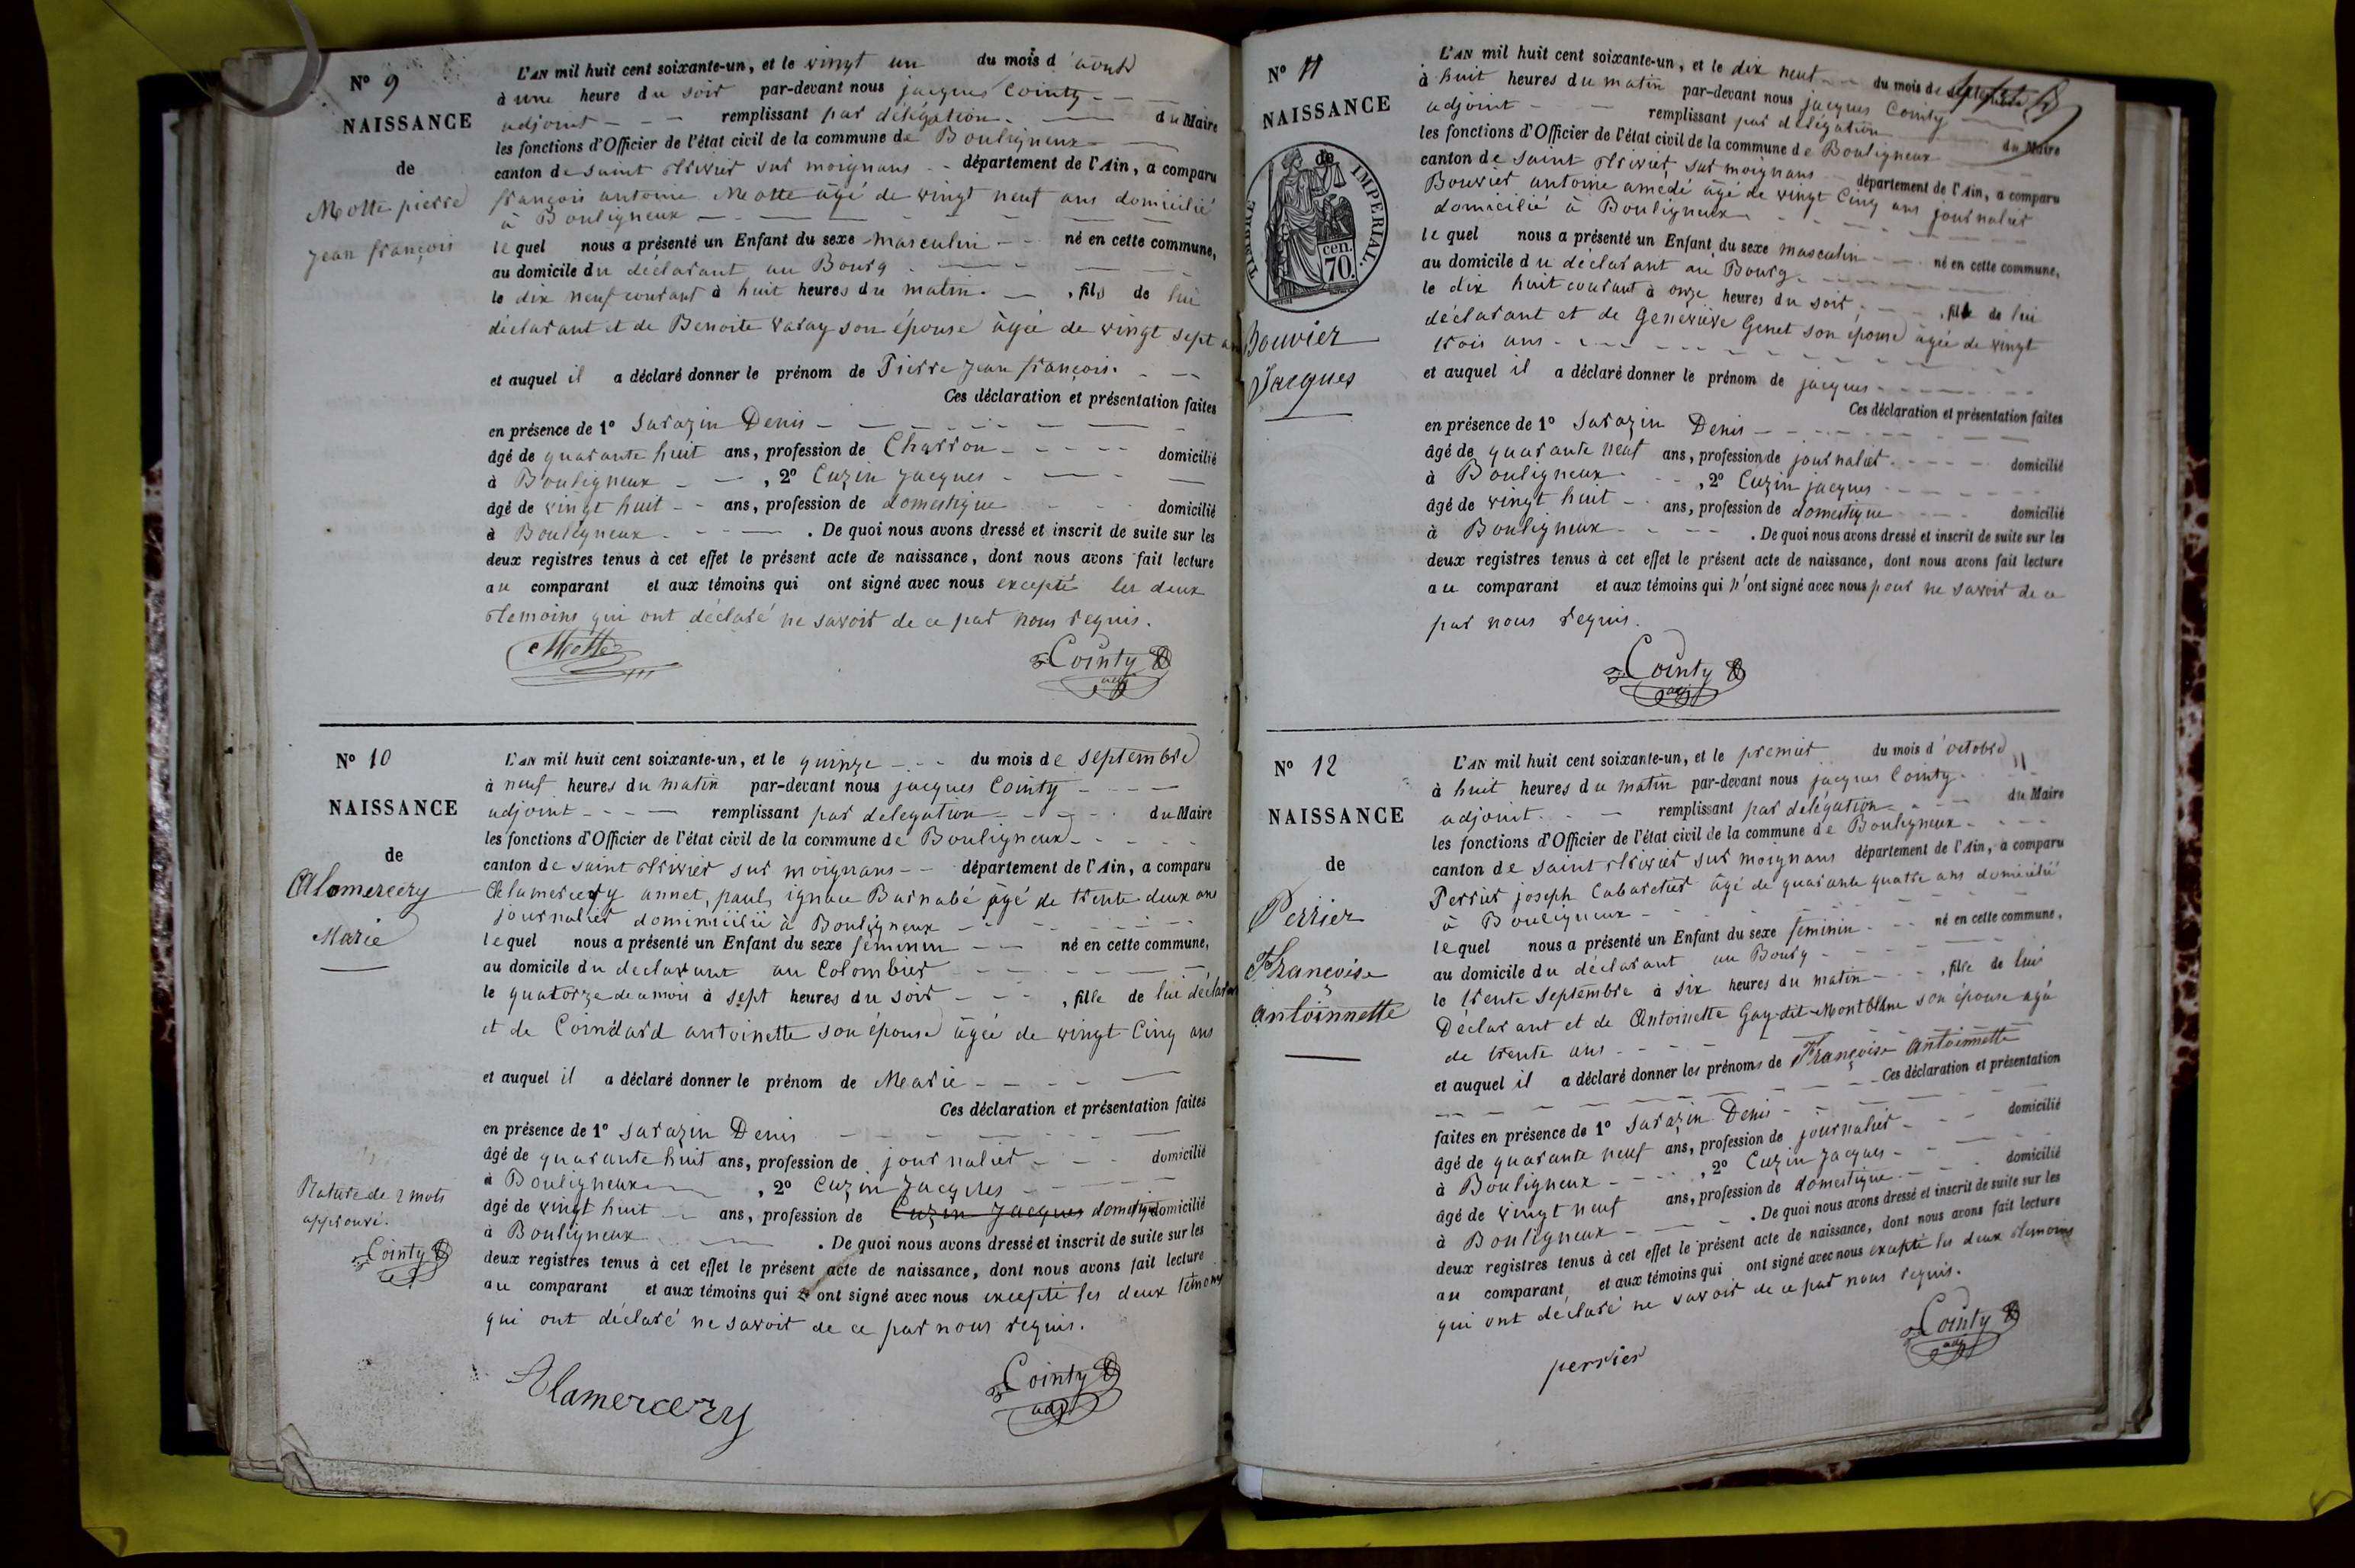 N° 9
NAISSANCE
de
Motte pierre
Jean françois
L'AN mil huit cent soixante-un, et le vingt un du mois d'août
à une heure du soir par-devant nous jacques Cointy
adjoint remplissant par délégation du Maire
les fonctions d'Officier de l'état civil de la commune de Bouligneux
canton de saint trivier sur moignans département de l'Ain, a comparu
françois antoine Motte âgé de vingt neuf ans domicilié
à Bouligneux
lequel nous a présenté un Enfant du sexe masculin né en cette commune,
au domicile du déclarant au Bourg
le dix neuf courant à huit heures du matin. , fils de lui
déclarant et de Benoite Varay son épouse âgée de vingt sept ans
et auquel il a déclaré donner le prénom de Pierre Jean françois.
Ces déclaration et présentation faites
en présence de 1° Sarazin Denis
âgé de quarante huit ans, profession de Charron domicilié
à Bouligneux , 2° Cuzin Jacques
âgé de vingt huit ans, profession de domestique domicilié
à Bouligneux . De quoi nous avons dressé et inscrit de suite sur les
deux registres tenus à cet effet le présent acte de naissance, dont nous avons fait lecture
au comparant et aux témoins qui ont signé avec nous excepté les deux
temoins qui ont déclaré ne savoir de ce par nous requis.
Motte Cointy
adj
N° 10
NAISSANCE
de
Alamercery
Marie
L'AN mil huit cent soixante-un, et le quinze du mois de septembre
à neuf heures du matin par-devant nous jacques Cointy
adjoint remplissant par delegation du Maire
les fonctions d'Officier de l'état civil de la commune de Bouligneux
canton de saint trivier sur moignans département de l'Ain, a comparu
Alamercery annet, paul, ignace Barnabé âgé de trente deux ans
journalier dominicilié à Bouligneux
lequel nous a présenté un Enfant du sexe feminin né en cette commune,
au domicile du declarant au Colombier
le quatorze de ce mois à sept heures du soir , fille de lui déclarant
et de Coindard antoinette son épouse âgée de vingt Cinq ans
et auquel il a déclaré donner le prénom de Marie
Ces déclaration et présentation faites
en présence de 1° sarazin Denis
âgé de quarante huit ans, profession de journalier domicilié
à Bouligneux , 2° Cuzin Jacques
âgé de vingt huit ans, profession de Cuzin Jacques domestique domicilié
à Bouligneux . De quoi nous avons dressé et inscrit de suite sur les
deux registres tenus à cet effet le présent acte de naissance, dont nous avons fait lecture
au comparant et aux témoins qui ont signé avec nous excepté les deux temoins
qui ont déclaré ne savoir de ce par nous requis.
Rature de 2 mots
approuvé.
Cointy
Alamercery Cointy
adj
N° 11
NAISSANCE
de
TIMBRE IMPERIAL.
70 cen.
Bouvier
Jacques
L'AN mil huit cent soixante-un, et le dix neuf du mois de septembre
à huit heures du matin par-devant nous jacques Cointy
adjoint remplissant par délégation du Maire
les fonctions d'Officier de l'état civil de la commune de Bouligneux
canton de saint trivier sur moignans département de l'Ain, a comparu
Bouvier antoine amedé âgé de vingt Cinq ans journalier
domicilié à Bouligneux
lequel nous a présenté un Enfant du sexe masculin né en cette commune,
au domicile du déclarant au Bourg
le dix huit courant à onze heures du soir , fils de lui
déclarant et de Geneviève Genet son épouse âgée de vingt
trois ans
et auquel il a déclaré donner le prénom de jacques
Ces déclaration et présentation faites
en présence de 1° Sarazin Denis
âgé de quarante neuf ans, profession de journalier domicilié
à Bouligneux , 2° Cuzin jacques
âgé de vingt huit ans, profession de domestique domicilié
à Bouligneux . De quoi nous avons dressé et inscrit de suite sur les
deux registres tenus à cet effet le présent acte de naissance, dont nous avons fait lecture
au comparant et aux témoins qui n'ont signé avec nous pour ne savoir de ce
par nous requis.
Cointy
adj
N° 12
NAISSANCE
de
Perrier
Françoise
antoinnette
L'AN mil huit cent soixante-un, et le premier du mois d'octobre
à huit heures du matin par-devant nous jacques Cointy
adjoint remplissant par délégation du Maire
les fonctions d'Officier de l'état civil de la commune de Bouligneux
canton de saint trivier sur moignans département de l'Ain, a comparu
Perrier joseph Cabaretier âgé de quarante quatre ans domicilié
à Bouligneux
lequel nous a présenté un Enfant du sexe feminin né en cette commune,
au domicile du déclarant au Bourg
le trente septembre à six heures du matin , fille de lui
Déclarant et de Antoinette Gay-dit-Montblanc son épouse agé
de trente ans
et auquel il a déclaré donner les prénoms de Françoise antoinnette
Ces déclaration et présentation
faites en présence de 1° Sarazin Denis
âgé de quarante neuf ans, profession de journalier domicilié
à Bouligneux , 2° Cuzin Jacques
âgé de vingt neuf ans, profession de domestique domicilié
à Bouligneux . De quoi nous avons dressé et inscrit de suite sur les
deux registres tenus à cet effet le présent acte de naissance, dont nous avons fait lecture
au comparant et aux témoins qui ont signé avec nous excepté les deux temoins
qui ont déclaré ne savoir de ce par nous requis.
perrier Cointy
adj